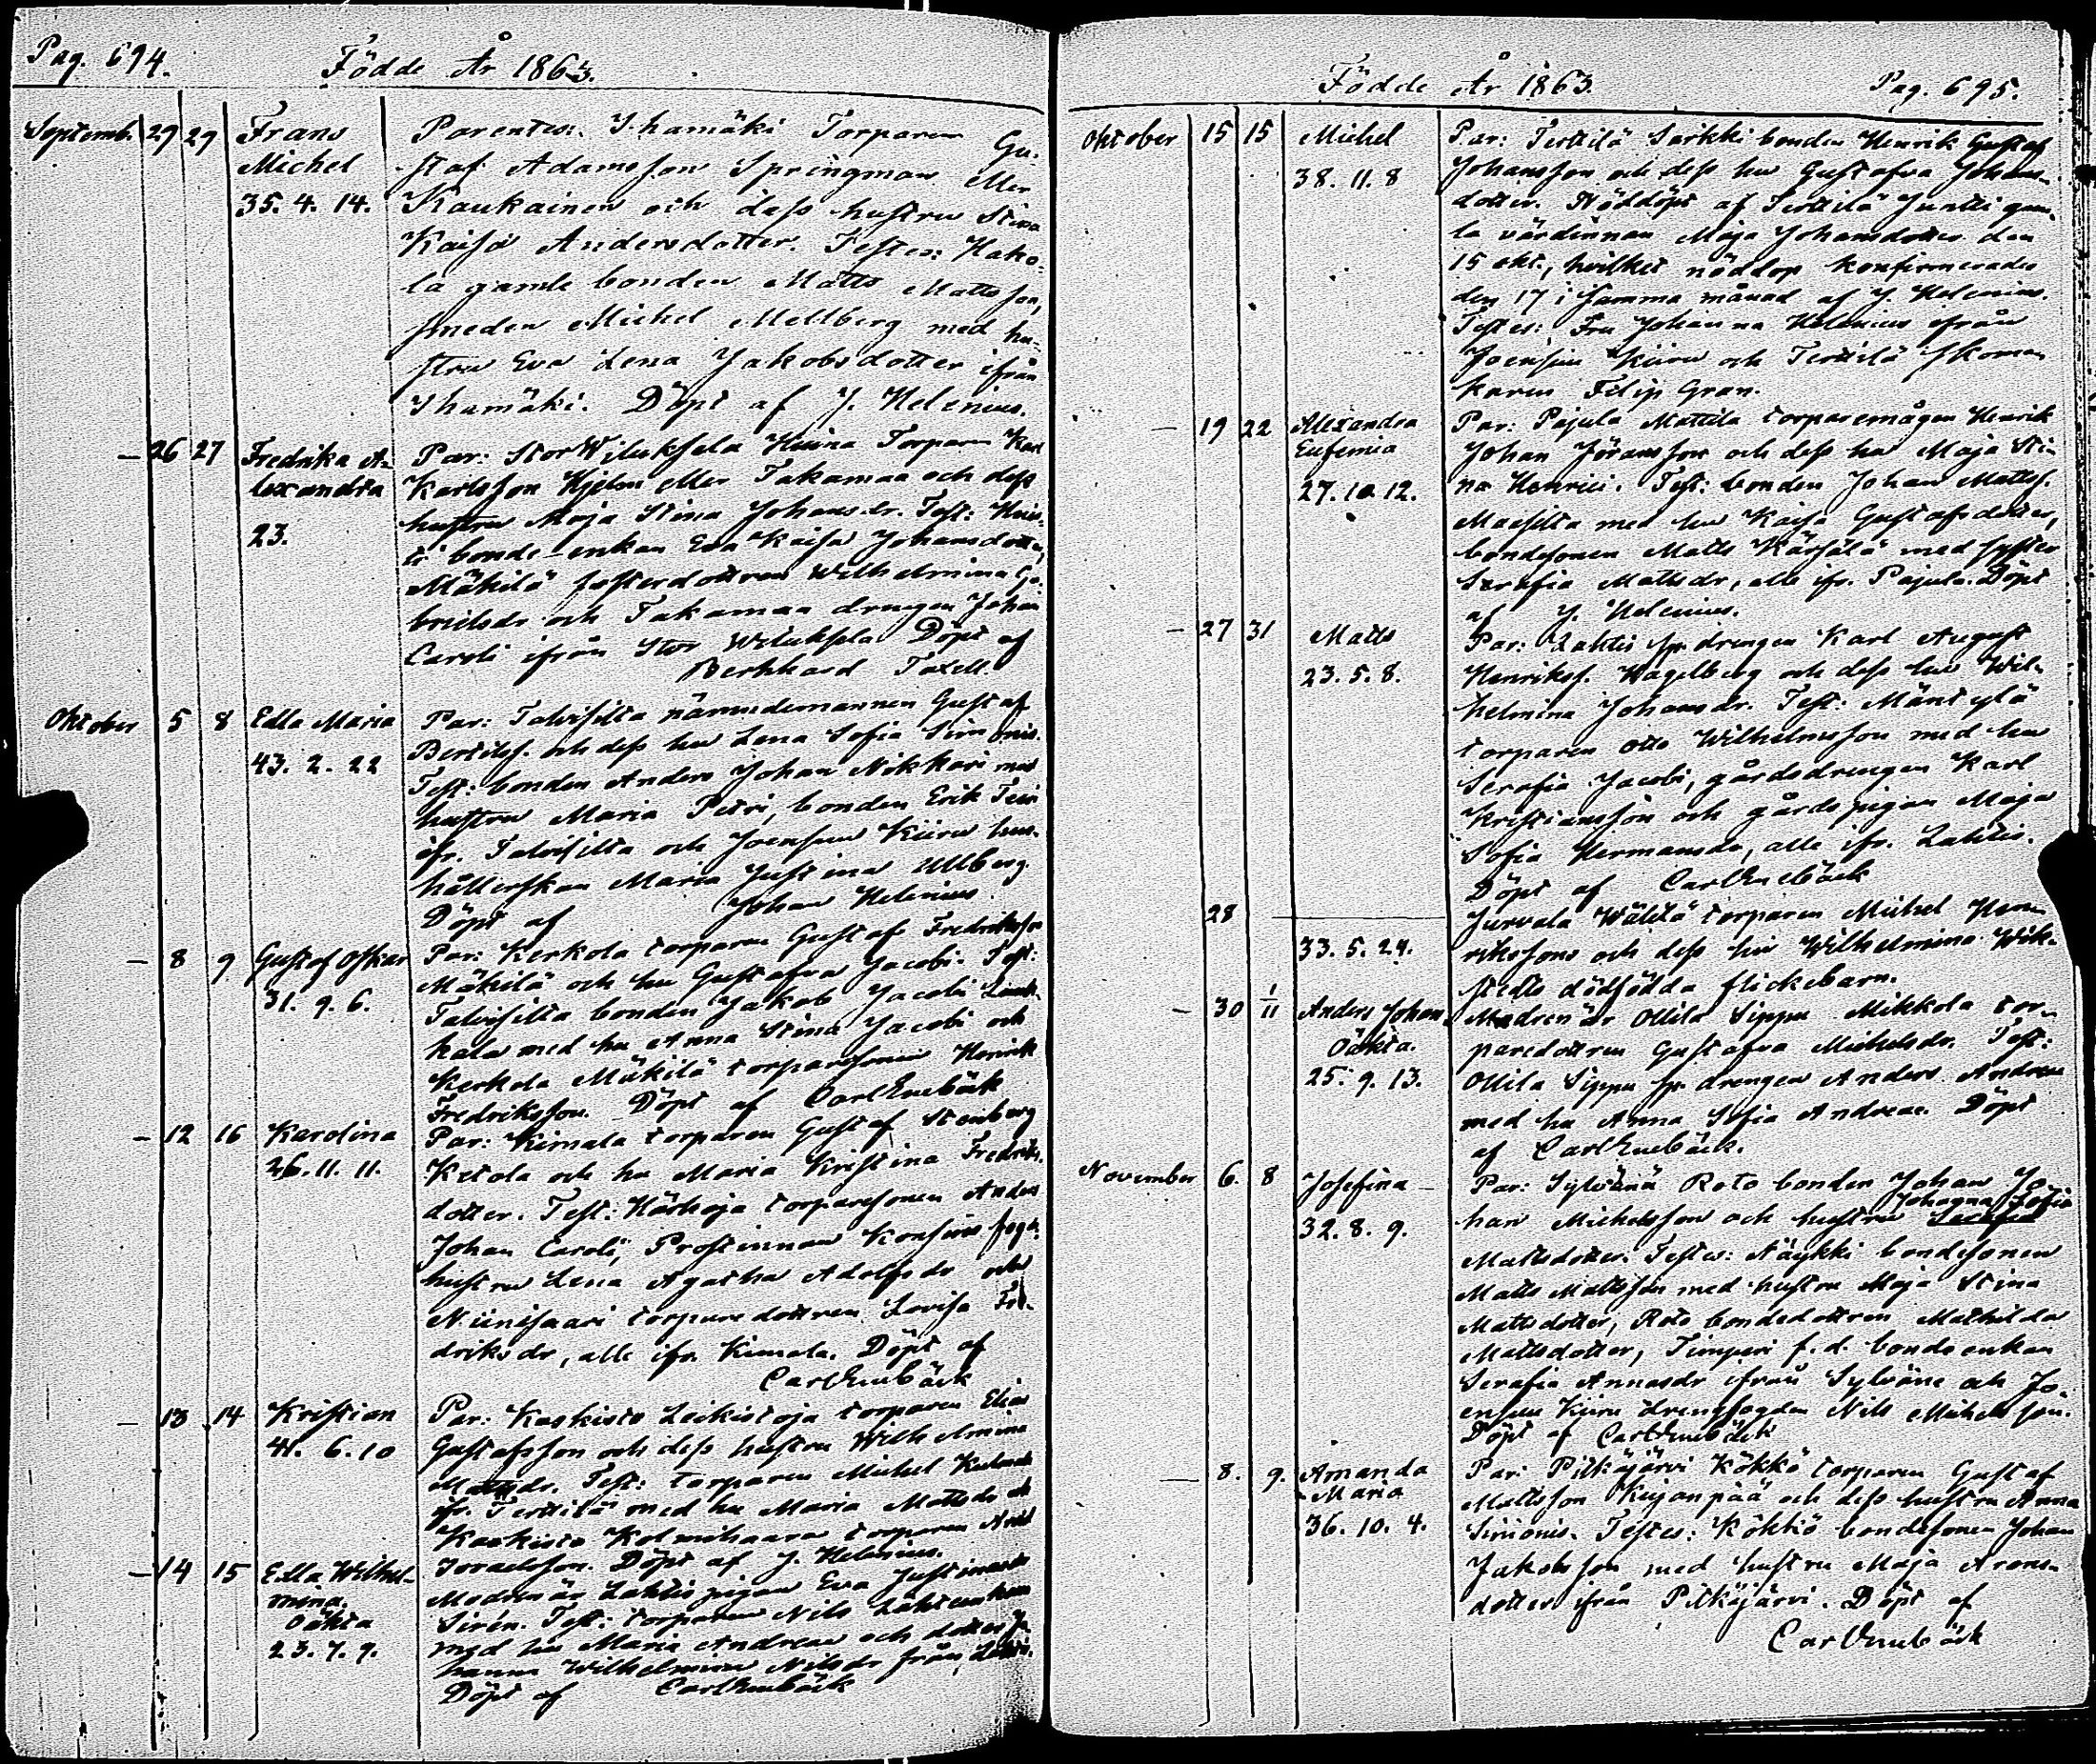 Pag. 694.
Födde År 1863.
Septemb. 29 29 Frans Michel 35. 4. 14.
Parentes: Ihamäki Torparen Gu-
staf Adamsson Springman eller
Kaukainen och dess hustru Stina
Kaisa Andersdotter. Testes: Hako-
la gamle bonden Matts Mattsson,
smeden Michel Mellberg med hu-
stru Eva Lena Jakobsdotter ifrån
Ihamäki. Döpt af J. Helenius.
— 26 27 Fredrika A-
lexandra
23.
Par: Stor Wiluksela Torparen Karl
Karlsson Hjelm eller Takamaa och dess
hustru Maja Stina Johansdr. Test:
bonde-enkan Eva Kaisa Johansdotter,
Mäkilä fosterdottren Wilhelmina Ga-
brielsdr och Takamaa drengen Johan
Caroli ifrån Stor Wiluksela Döpt af
Bernhard Taxell.
Oktober 5 8 Edla Maria
43. 2. 22
Par: Talvisilta nämndemannen Gustaf
Bertilss. och dess hu Lena Sofia Simonis.
Test: bonden Anders Johan Nikkari med
hustru Maria Petri, bonden Erik
ifr. Talvisilta och Joensuu Kiiru hus-
hållerskan Maria Justina Ullberg.
Döpt af Johan Helenius.
— 8 9 Gustaf Oskar
31. 9. 6.
Par: Kerkola torparen Gustaf Fredriksson
Mäkilä och hu Gustafva Jacobi. Test:
Talvisilta bonden Jakob Jacobi
kala med hu Anna Stina Jacobi och
Kerkola Mäkilä torparsonen Henrik
Fredriksson. Döpt af Carl Enebäck
— 12 16 Karolina
26. 11. 11.
Par: Kimala torparen Gustaf Stenberg
Ketola och hu Maria Kristina Fredriks-
dotter. Test: Härkoja torparesonen Anders
Johan Caroli, Prostinnan
hustru Lena Agatha Adolfsdr och
Niinisaari torparedottren Lovisa Fre-
driksdr, alle ifr. Kimala. Döpt af
Carl Enebäck
— 13 14 Kristian
41. 6. 10
Par: Kaskisto Leikistoja torparen Elias
Gustafsson och dess hustru Wilhelmina
Mattsdr. Test: torparen Michel
ifr. Terttilä med hu Maria Mattsdr och
Kaskisto Kolmihaara torparen
Israelsson. Döpt af J. Helenius.
— 14 15 Edla Wilhel-
mina.
Oäkta
23. 7. 9.
Modren är Lahtis pigan Eva Justina
Sirén. Test: torparen Nils
med hu Maria Andreae och dotter Jo-
hanna Wilhelmina Nilsdr från Lahtis.
Döpt af Carl Enebäck
Födde År 1863.
Pag. 695.
Oktober 15 15 Michel
38. 11. 8
Par: Terttilä Sarkki bonden Henrik Gustaf
Johansson och dess hu Gustafva Johans-
dotter. Nöddöpt af Terttilä Juntti gam-
la värdinnan Maja Johansdotter den
15 okt., hvilket nöddop konfirmerades
den 17 i samma månad af J. Helenius.
Testes: Fru Johanna Helenius från
Joensuu Kiiru och Terttilä skoma-
karen Filip Gran.
— 19 22 Alexandra
Eufemia
27. 10. 12.
Par: Pajula Mattila torparemågen Henrik
Johan Jöransson och dess hu Maja Sti-
na Henrici. Test: bonden Johan Mattss.
med hu Kaisa Gustafsdotter,
bondesonen Matts Kärsälä med syster
Serafia Mattsdr, alle ifr. Pajula. Döpt
af J. Helenius.
— 27 31 Matts
23. 5. 8.
Par: Lahtis sp. drengen Karl August
Henrikss. Hagelberg och dess hu Wil-
helmina Johansdr. Test: Mäntylä
torparen Otto Wilhelmsson med hu
Serafia Jacobi, gårdsdrengen Karl
Kristiansson och gårdspigan Maja
Sofia Hermansdr, alle ifr. Lahtis.
Döpt af Carl Enebäck
28 —
33. 5. 24.
Jurvala Wälilä torparen Michel Hen-
rikssons och dess hu Wilhelmina Wik-
stedts dödfödda flickebarn.
— 30 1/11 Anders Johan
Oäkta.
25. 9. 13.
Modren är Ollila Sippu Mikkola tor-
paredottren Gustafva Michelsdr. Test:
Ollila Sippu sp. drengen Anders Andreae
med hu Anna Sofia Andreae. Döpt
af Carl Enebäck.
November 6. 8 Josefina
32. 8. 9.
Par: Sylvänä Roto bonden Johan Jo-
Johanna Sofia
han Michelsson och hustru Serafia
Mattsdotter. Testes: Näykki bondesonen
Matts Mattsson med hustru Maja Stina
Mattsdotter, Roto bondedottren Mathilda
Mattsdotter, Timperi f.d. bonde enkan
Serafia Annasdr ifrån Sylväne och Jo-
ensuu Kiiru drengfogden Nils Michelsson.
Döpt af Carl Enebäck
— 8. 9. Amanda
Maria
36. 10. 4.
Par: Pitkäjärvi Kökkö torparen Gustaf
Mattsson Kujanpää och dess hustru Anna
Simonis. Testes: Kökkö bondesonen Johan
Jakobsson med hustru Maja Arons-
dotter ifrån Pitkäjärvi. Döpt af
Carl Enebäck